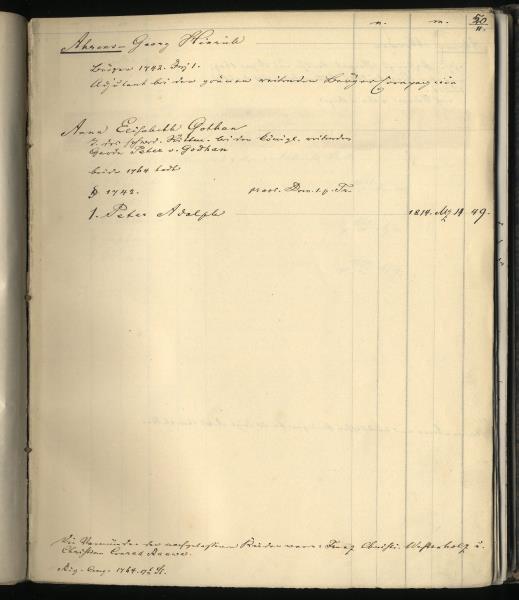 n. m. 50
II.
Ahrens Georg Hinrich
Bürger 1742. Juj 1.
Adjutant bei der grünen reitenden Bürger Compagnie
Anna Elisabeth Gothan
T. des bei den Königl. reitenden
Garde Peter v. Godhan
beide 1764 todt
1742. procl. Dom. 1. p. Tr.
1. Peter Adolph 1814. 49.
Die Vormünder der nachgelassenen Kinder waren: Franz Christi. Westerholz u.
Christian Conrad
1764.